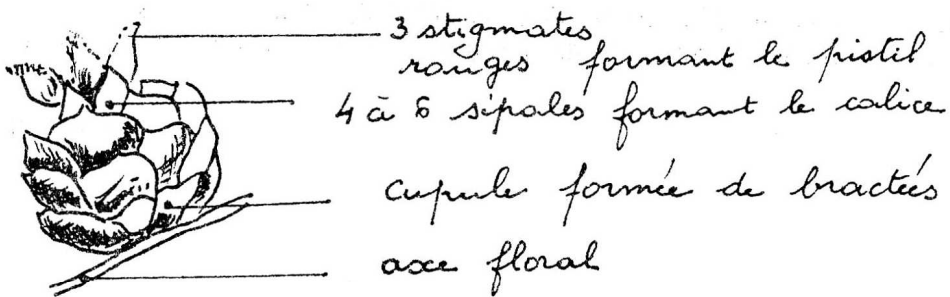 3 stigmates
rouges formant le pistil
4 à 6 sépales formant le calice
cupule formée de bractées
axe floral